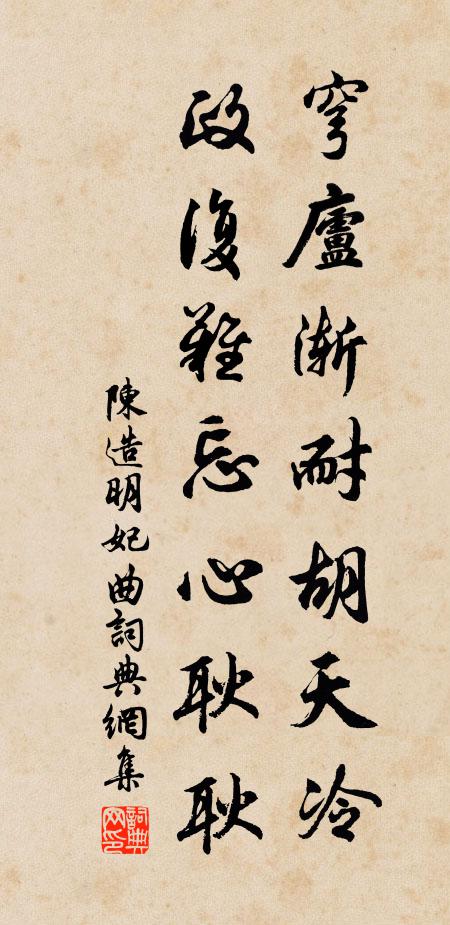 穹廬漸耐胡天冷
政復難忘心耿耿
陳造明妃曲詞典網集
詞典網印